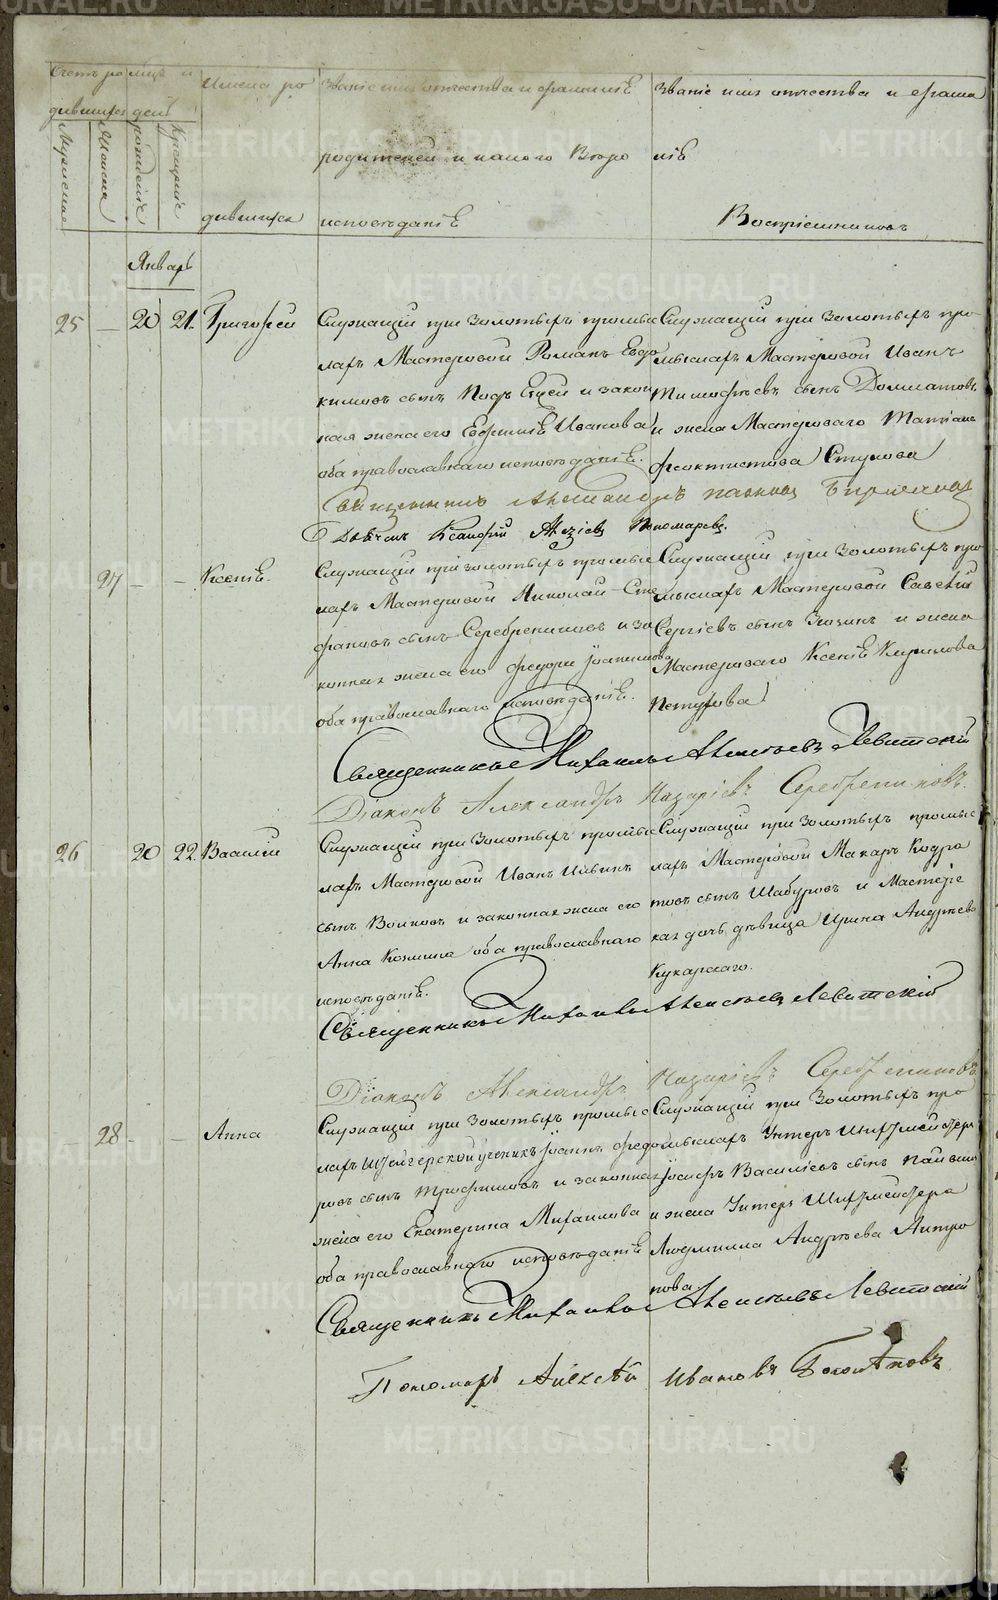 Счетъ ро
дившихся
Мужеска
Женска
Мѣсяцъ и
день
рожденіе
Крещеніе
Имена ро
дившихся
Званіе имя отчества и фамиліѣ
родителей и какого Вѣро
исповѣданіѣ
Званіе имя отчества и фами
ліѣ
Воспріемниковъ
Январь
25 — 20 21. Григорей
Служащій при Золотыхъ промыс
лахъ Мастеровой Романъ Евдо
кимовъ сынъ и закон
ная жена его Евфиміѣ Иванова
оба православнаго исповѣданіѣ.
Служащій при Золотыхъ про
мыслахъ Мастеровой Иванъ
Тимофѣевъ сынъ Долматовъ
и жена Мастероваго Татіана
Феоктистова Стукова
Священникъ Александръ Павловъ
Дьячекъ Ксенофонтъ Пономаревъ.
27 — — Ксеніѣ.
Служащій при золотыхъ промыс
лахъ Мастеровой Николай Сте
фановъ сынъ Серебрениковъ и за
конная жена его Федора
оба православнаго исповѣданіѣ.
Служащій при Золотыхъ про
мыслахъ Мастеровой Савелій
Сергіевъ сынъ и жена
Мастероваго Ксеніѣ Кирилова
Петухова
Священникъ Михаилъ Алексѣевъ Левитскій
Діаконъ Александръ Назаріевъ Серебрениковъ.
26 20 22. Василій
Служащій при Золотыхъ промыс
лахъ Мастеровой Иванъ Ильинъ
сынъ Волковъ и законная жена его
Анна Козмина оба православнаго
исповѣданіѣ.
Служащій при Золотыхъ промыс
лахъ Мастеровой Макаръ Кодра
товъ сынъ Шабуровъ и Мастерс
кая дочь дѣвица Ирина Андрѣева
Кукарскаго.
Священникъ Михаилъ Алексѣевъ Левитскій
Діаконъ Александръ Назаріевъ Серебрениковъ
28 — — Анна
Служащій при Золотыхъ промыс
лахъ Штейгерской ученикъ Іоаннъ Федо
ровъ сынъ Трофимовъ и законная
жена его Екатерина Михаилова
оба православнаго исповѣданіѣ
Служащій при Золотыхъ про
мыслахъ Унтеръ Шихтмейстеръ
Іосифъ Василіевъ сынъ
и жена Унтеръ Шихтмейстера
Людмила Андрѣева Антро
пова
Священникъ Михаилъ Алексѣевъ Левитскій
Пономарь Алексѣй Ивановъ Боголѣповъ
METRIKI.GASO-URAL.RU